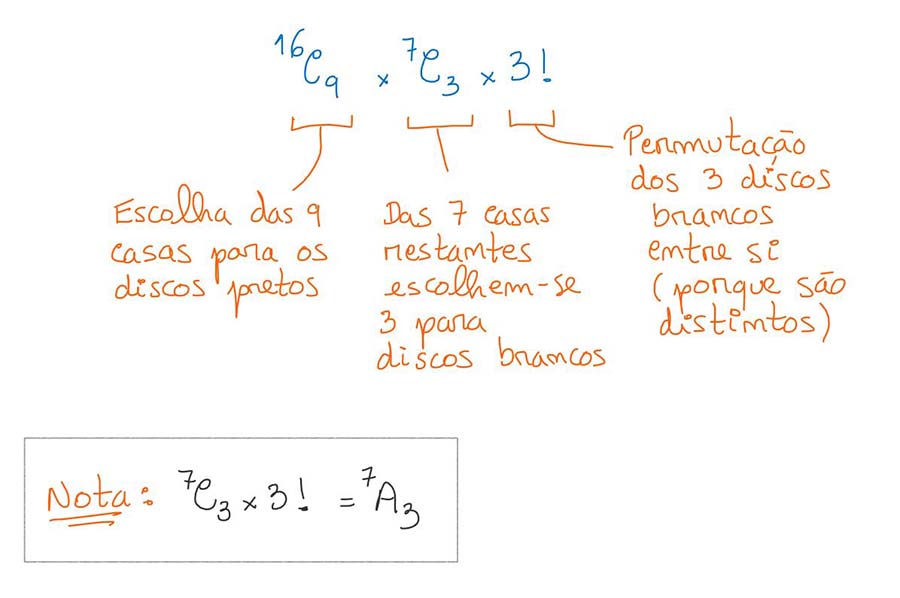 ¹⁶C₉ × ⁷C₃ × 3!
Escolha das 9
casas para os
discos pretos
Das 7 casas
restantes
escolhem-se
3 para
discos brancos
Permutação
dos 3 discos
brancos
entre si
(porque são
distintos)
Nota: ⁷C₃ × 3! = ⁷A₃